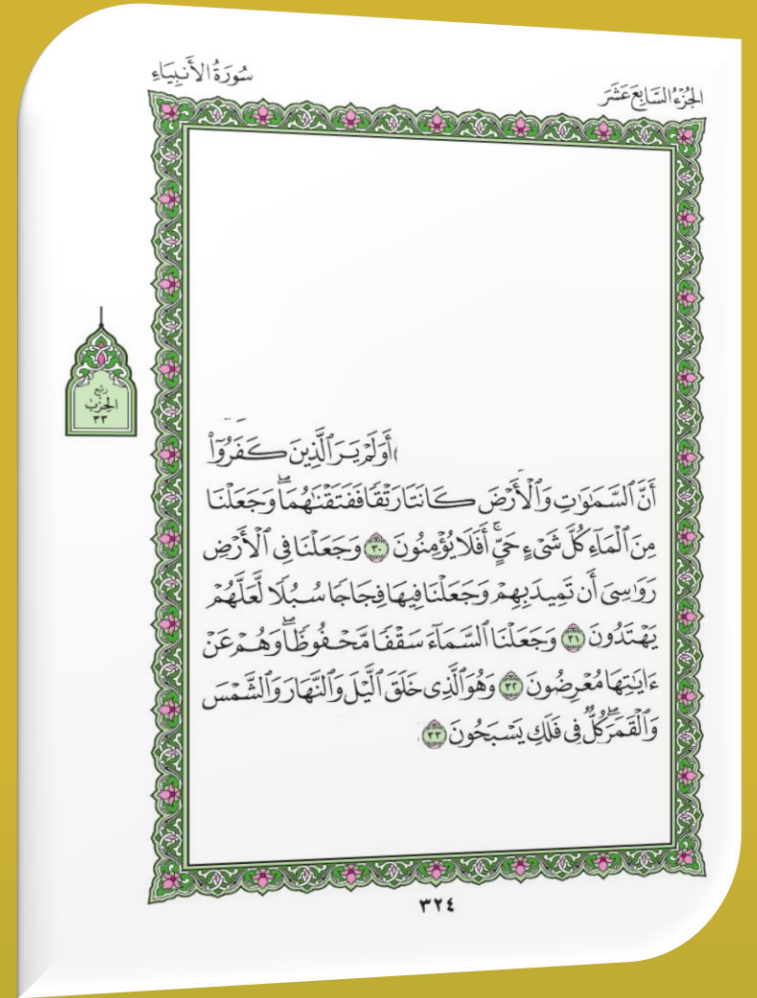 الجُزْءُ السَّابِعَ عَشَرَ
سُورَةُ الأَنبِيَاءِ
رُبْع
الحِزْب
٣٣
أَوَلَمْ يَرَ ٱلَّذِينَ كَفَرُوٓا۟
أَنَّ ٱلسَّمَٰوَٰتِ وَٱلْأَرْضَ كَانَتَا رَتْقًا فَفَتَقْنَٰهُمَا ۖ وَجَعَلْنَا
مِنَ ٱلْمَآءِ كُلَّ شَىْءٍ حَىٍّ ۖ أَفَلَا يُؤْمِنُونَ ٣٠ وَجَعَلْنَا فِى ٱلْأَرْضِ
رَوَٰسِىَ أَن تَمِيدَ بِهِمْ وَجَعَلْنَا فِيهَا فِجَاجًا سُبُلًا لَّعَلَّهُمْ
يَهْتَدُونَ ٣١ وَجَعَلْنَا ٱلسَّمَآءَ سَقْفًا مَّحْفُوظًا ۖ وَهُمْ عَنْ
ءَايَٰتِهَا مُعْرِضُونَ ٣٢ وَهُوَ ٱلَّذِى خَلَقَ ٱلَّيْلَ وَٱلنَّهَارَ وَٱلشَّمْسَ
وَٱلْقَمَرَ ۖ كُلٌّ فِى فَلَكٍ يَسْبَحُونَ ٣٣
٣٢٤